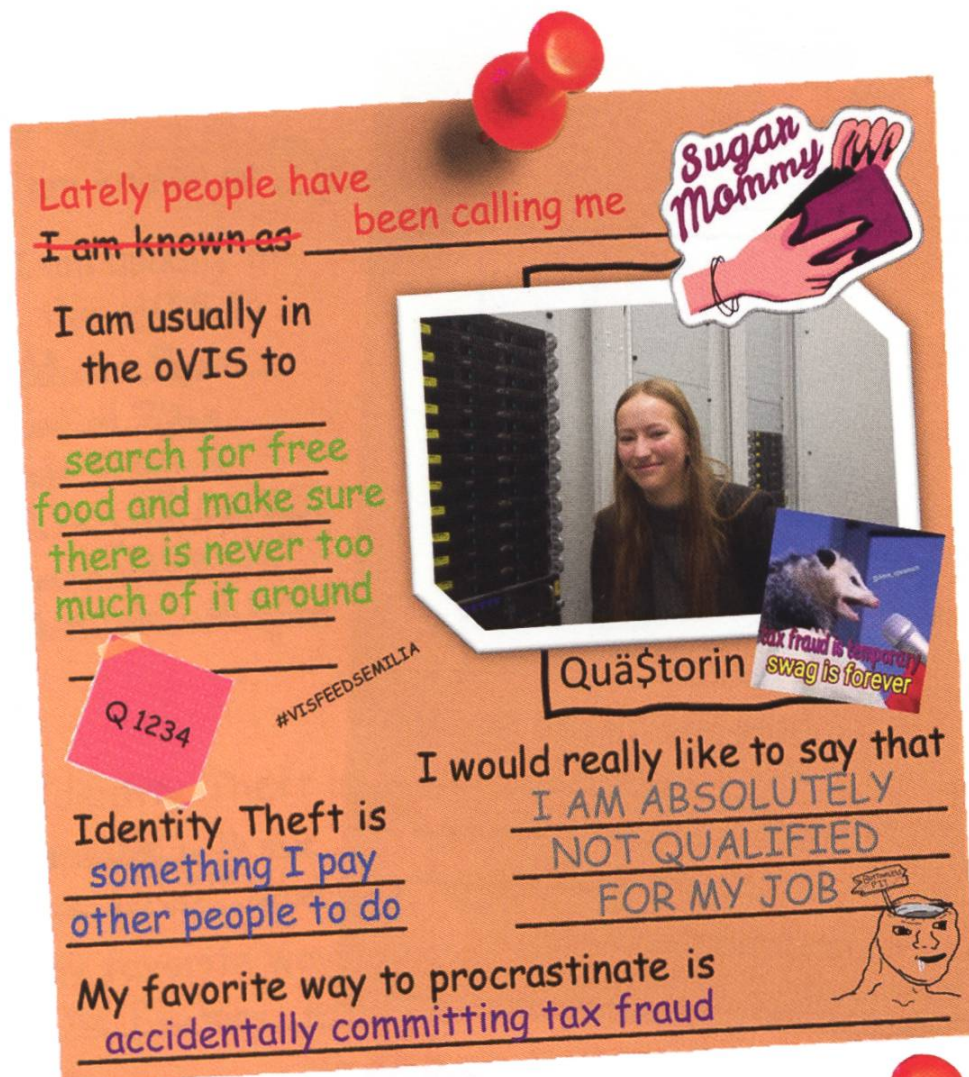 Lately people have
been calling me
I am known as
Sugar
Mommy
I am usually in
the oVIS to
search for free
food and make sure
there is never too
much of it around
Q 1234
#VISFEEDSEMILIA
Quä$torin
tax fraud is temporary
swag is forever
I would really like to say that
I AM ABSOLUTELY
NOT QUALIFIED
FOR MY JOB
Bottomless
PIT
Identity Theft is
something I pay
other people to do
My favorite way to procrastinate is
accidentally committing tax fraud